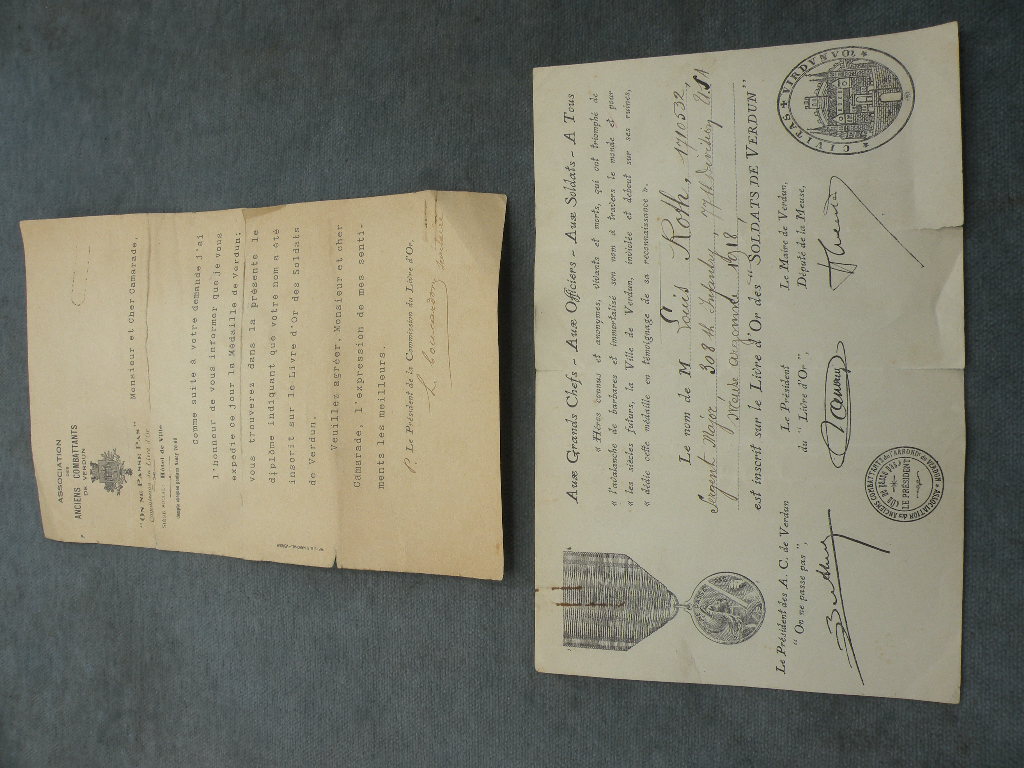 ASSOCIATION
DES
ANCIENS COMBATTANTS
DE VERDUN
"ON NE PASSE PAS"
Commission du Livre d'Or
Hôtel de Ville
Monsieur et Cher Camarade,
Comme suite à votre demande j'ai
l'honneur de vous informer que je vous
expédie ce jour la Médaille de Verdun;
vous trouverez dans la présente le
diplôme indiquant que votre nom a été
inscrit sur le Livre d'Or des Soldats
de Verdun.
Veuillez agréer, Monsieur et cher
Camarade, l'expression de mes senti-
ments les meilleurs.
Le Président de la Commission du Livre d'Or,
Aux Grands Chefs - Aux Officiers - Aux Soldats - A Tous
« Héros connus et anonymes, vivants et morts, qui ont triomphé de
« l'avalanche de barbares et immortalisé son nom à travers le monde et pour
« les siècles futurs, la Ville de Verdun, inviolée et debout sur ses ruines,
« dédie cette médaille en témoignage de sa reconnaissance ».
Le nom de M Louis Roth, 1710532,
Sergent Major 308th Infantry 77th Division USA
Meuse Argonne 1918
est inscrit sur le Livre d'Or des "SOLDATS DE VERDUN"
Le Président des A. C. de Verdun
"On ne passe pas",
Le Président
du "Livre d'Or",
Le Maire de Verdun,
Député de la Meuse,
LE PRÉSIDENT
CIVITAS VIRDVNVO